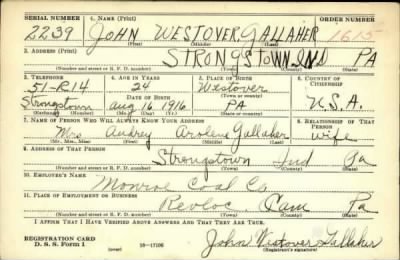 SERIAL NUMBER 1. NAME (Print)
2239 JOHN WESTOVER GALLAHER 1615
(First) (Middle) (Last)
2. ADDRESS (Print)
STRONGSTOWN IND PA
(Number and street or R. F. D. number) (Town) (County) (State)
3. TELEPHONE 4. AGE IN YEARS 5. PLACE OF BIRTH 6. COUNTRY OF CITIZENSHIP
51-R14 24 Westover
DATE OF BIRTH (Town or county)
Strongstown Aug 16 1916 PA U.S.A.
(Exchange) (Number) (Mo.) (Day) (Yr.) (State or country)
7. NAME OF PERSON WHO WILL ALWAYS KNOW YOUR ADDRESS 8. RELATIONSHIP OF THAT PERSON
Mrs Audrey Arolene Gallaher wife
(Mr., Mrs., Miss) (First) (Middle) (Last)
9. ADDRESS OF THAT PERSON
Strongstown Ind Pa
(Number and street or R. F. D. number) (Town) (County) (State)
10. EMPLOYER'S NAME
Monroe Coal Co
11. PLACE OF EMPLOYMENT OR BUSINESS
Revloc Cam Pa
(Number and street or R. F. D. number) (Town) (County) (State)
I AFFIRM THAT I HAVE VERIFIED ABOVE ANSWERS AND THAT THEY ARE TRUE.
REGISTRATION CARD
D. S. S. FORM 1 (over) 16-17106 John Westover Gallaher
(Registrant's signature)